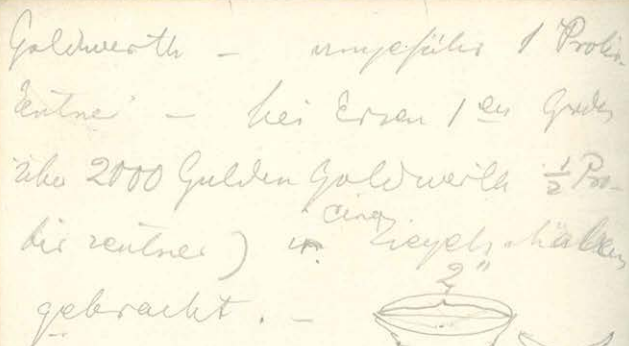 Goldwerth — ungefähr 1 Probir-
zentner — bei Erzen 1en Grades
über 2000 Gulden Goldwerth ½ Pro-
birzentner) in einen
gebracht. —
2"